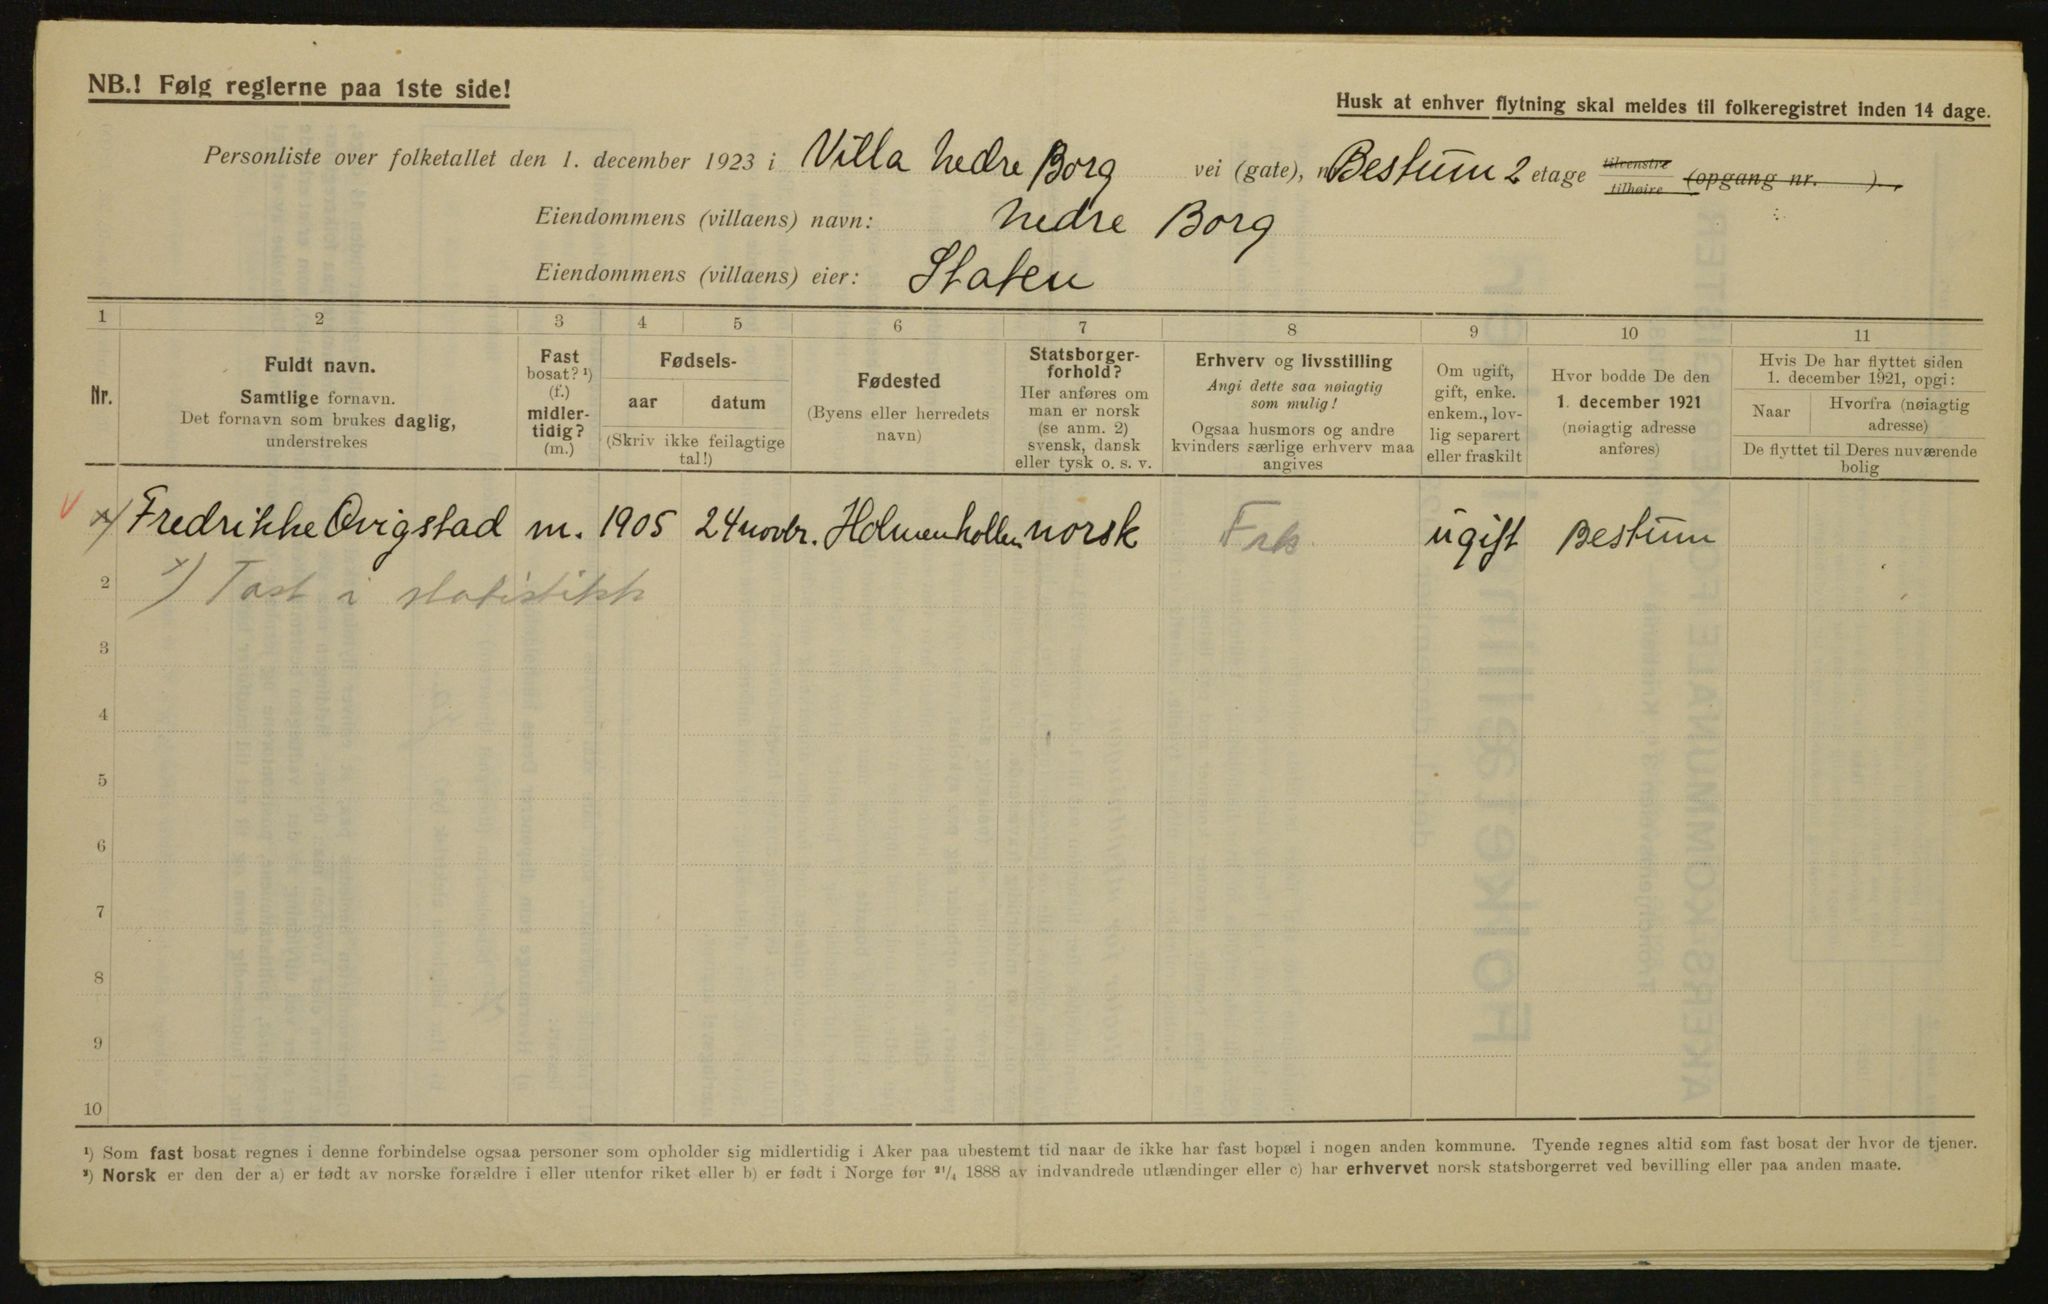 NB.! Følg reglerne paa 1ste side!
Husk at enhver flytning skal meldes til folkeregistret inden 14 dage.
Personliste over folketallet den 1. december 1923 i Villa Nedre Borg vei (gate), n Bestum 2 etage tilvenstre tilhøire (opgang nr. ).
Eiendommens (villaens) navn: Nedre Borg
Eiendommens (villaens) eier: Staten
1 2 3 4 5 6 7 8 9 10 11
Nr.
Fuldt navn.
Samtlige fornavn.
Det fornavn som brukes daglig,
understrekes
Fast
bosat? ¹)
(f.)
midler-
tidig?
(m.)
Fødsels-
aar datum
(Skriv ikke feilagtige
tal!)
Fødested
(Byens eller herredets
navn)
Statsborger-
forhold?
Her anføres om
man er norsk
(se anm. 2)
svensk, dansk
eller tysk o. s. v.
Erhverv og livsstilling
Angi dette saa nøiagtig
som mulig!
Ogsaa husmors og andre
kvinders særlige erhverv maa
angives
Om ugift,
gift, enke.
enkem., lov-
lig separert
eller fraskilt
Hvor bodde De den
1. december 1921
(nøiagtig adresse
anføres)
Hvis De har flyttet siden
1. december 1921, opgi:
Naar Hvorfra (nøiagtig
adresse)
De flyttet til Deres nuværende
bolig
x) Fredrikke Qvigstad m. 1905 24 novbr. Holmenkollen norsk Frk. ugift Bestum
2 x) Tast i statistikk
3
4
5
6
7
8
9
10
¹) Som fast bosat regnes i denne forbindelse ogsaa personer som opholder sig midlertidig i Aker paa ubestemt tid naar de ikke har fast bopæl i nogen anden kommune. Tyende regnes altid som fast bosat der hvor de tjener.
²) Norsk er den der a) er født av norske forældre i eller utenfor riket eller b) er født i Norge før ²¹/₄ 1888 av indvandrede utlændinger eller c) har erhvervet norsk statsborgerret ved bevilling eller paa anden maate.